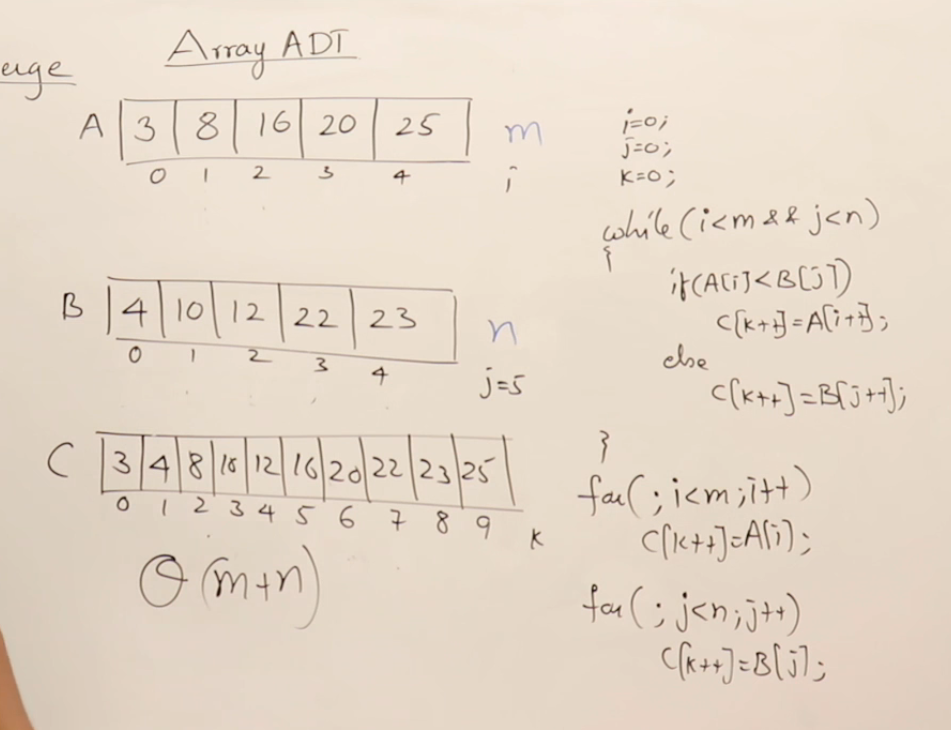 Array ADT
A 3 8 16 20 25 m
0 1 2 3 4 i
B 4 10 12 22 23 n
0 1 2 3 4 j=5
C 3 4 8 10 12 16 20 22 23 25
0 1 2 3 4 5 6 7 8 9 k
θ(m+n)
i=0;
j=0;
k=0;
while(i<m && j<n)
{
if(A[i]<B[j])
C[k++]=A[i++];
else
C[k++]=B[j++];
}
for(;i<m;i++)
C[k++]=A[i];
for(;j<n;j++)
C[k++]=B[j];